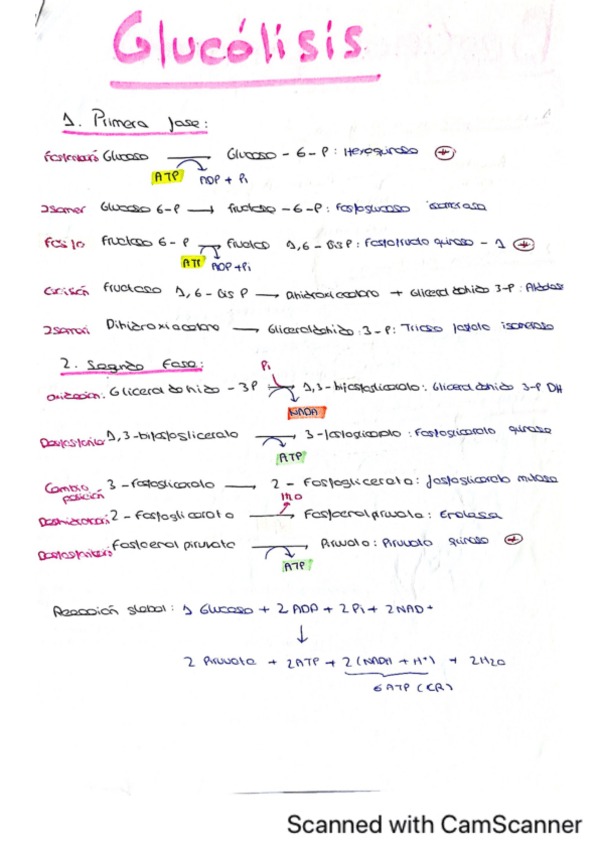 Glucólisis
1. Primera fase:
Glucosa → Glucosa - 6 - P : Hexoquinasa +
ATP ADP + Pi
Isomer Glucosa 6-P → fructosa - 6-P : Fosfoglucosa isomerasa
Fructosa 6 - P → Fructosa 1,6 - Bis P : Fosfofructo quinasa - 1 +
ATP ADP + Pi
Fructosa 1,6 - Bis P → Dihidroxiacetona + Gliceraldehido 3-P : Aldolasa
Dihidroxiacetona → Gliceraldehido 3-P : Triosa fosfato isomerasa
2. Segunda Fase:
Pi
Oxidación: Gliceraldehido - 3P → 1,3-bifosfoglicerato : Gliceraldehido 3-P DH
NADH
1,3-bifosfoglicerato → 3-fosfoglicerato : Fosfoglicerato quinasa
ATP
Cambio posición 3 - fosfoglicerato → 2 - Fosfoglicerato : fosfoglicerato mutasa
H2O
2 - Fosfoglicerato → Fosfoenolpiruvato : Enolasa
Fosfoenol piruvato → Piruvato : Piruvato quinasa +
ATP
Reacción global : 1 Glucosa + 2 ADP + 2 Pi + 2 NAD+
↓
2 Piruvato + 2ATP + 2 (NADH + H+) + 2H2O
6 ATP (CR)
Scanned with CamScanner